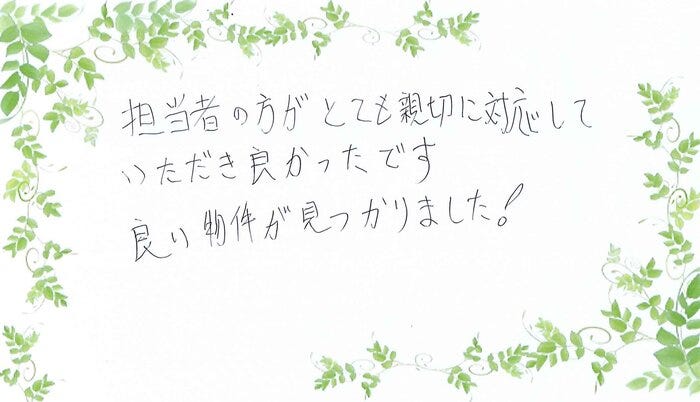 担当者の方がとても親切に対応して
いただき良かったです
良い物件が見つかりました!